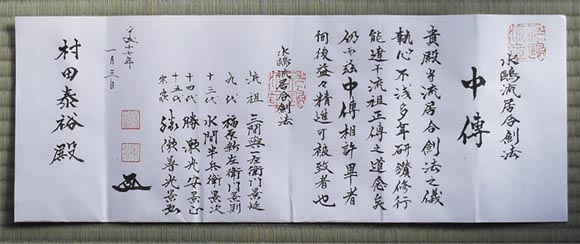 水鷗流居合剣法
中傳
貴殿当流居合剣法之儀
執心不浅多年研鑽修行
能達于流祖正傳之道念矣
仍而茲中傳相許畢者
向後益々精進可被致者也
水鷗流居合剣法
流祖 三間与左衛門景延
九代 福原新左衛門景則
十三代 水間半兵衛景次
十四代 勝瀬光安景正
十五代
宗家 勝瀬善光景弘
十七年
一月三日
村田泰裕殿